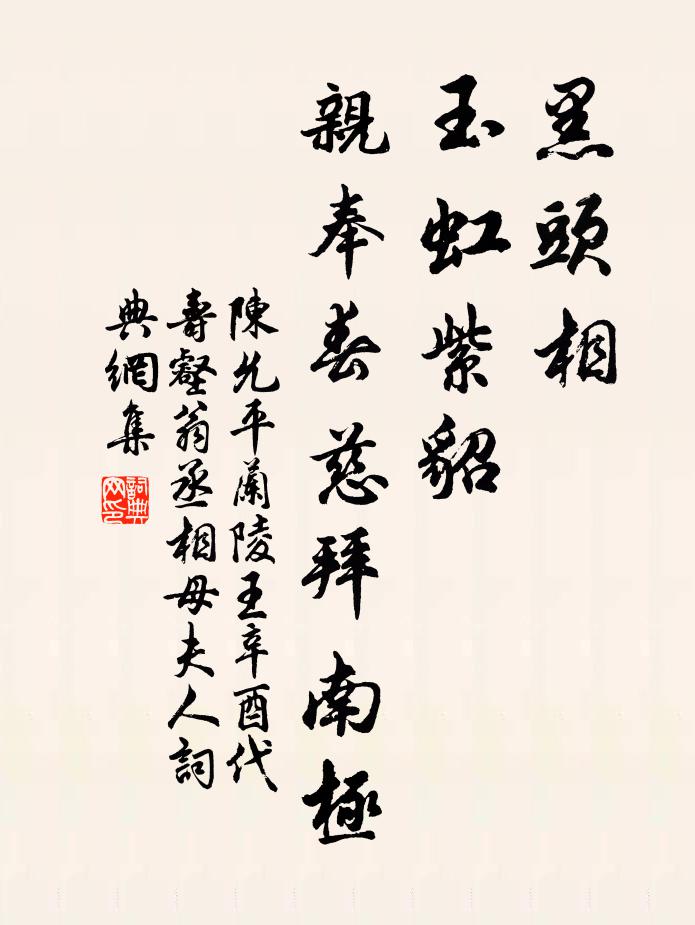 黑頭相
玉虹紫貂
親奉春慈拜南極
陳允平蘭陵王辛酉代
壽壑翁丞相母夫人詞
典網集
詞典网印